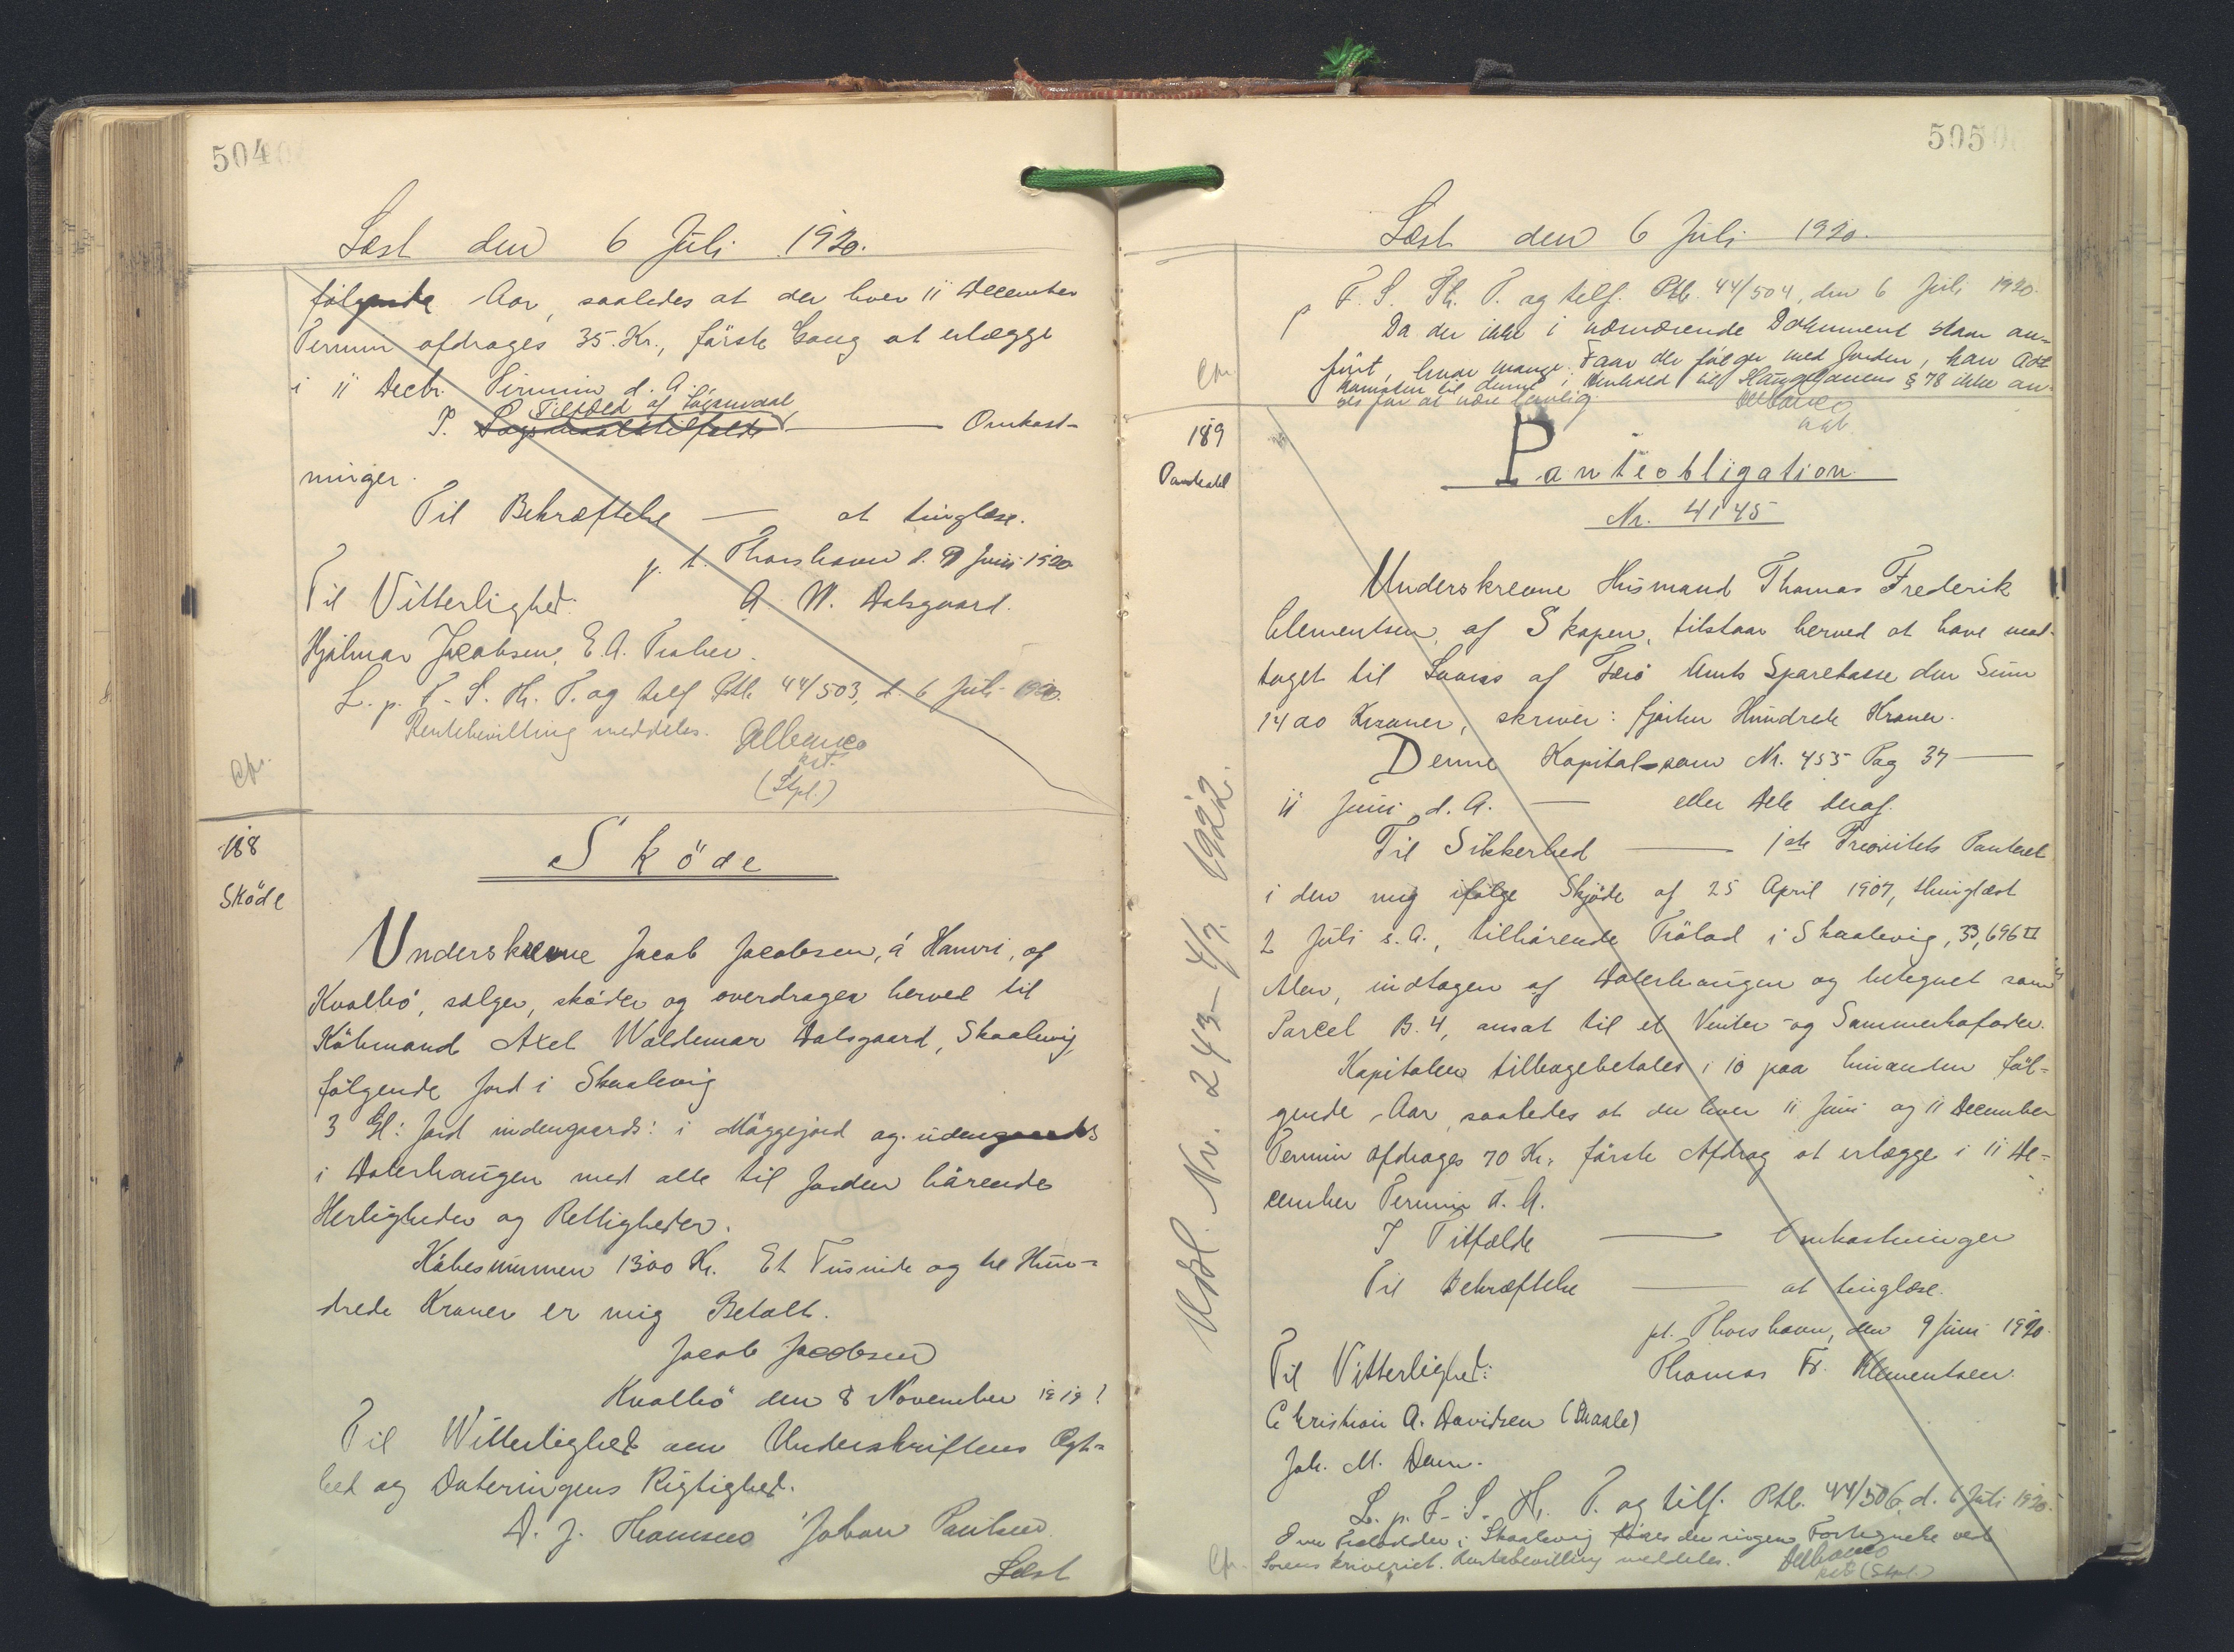 504
Læst den 6 Juli 1920.
følgende Aar, saaledes at der hver 11 December
Termin afdrages 35 Kr., förste Gang at erlægge
i 11 Decbr. Termin d. A.
Tilfælde af Søgsmaal
I. Søgsmaalstilfælde — Omkost-
ninger.
Til Bekræftelse — at tinglæse.
p. t. Thorshavn d. 9 Juni 1920
Til Vitterlighed: A. W. Dalsgaard.
Hjalmar Jacobsen, E. A.
L. p. F. S. Th. T. og tilf. Ptb. 44/503, d. 6 Juli 1920.
Rentebevilling meddeles.
(Stpl.)
188
Sköde
Sköde
Underskrevne Jacob Jacobsen, á Hamri, af
Kvalbö, sælger, sköder og overdrager herved til
Köbmand Axel Waldemar Dalsgaard, Skaalevig
følgende Jord i Skaalevig
3 Gl: Jord indengaards: i Möggejord og udengaards
i Dalerhaugen med alle til Jorden hörende
Herligheder og Rettigheder.
Köbesummen 1300 Kr. Et Tusinde og tre Hun-
drede Kroner er mig Betalt.
Jacob Jacobsen
Kvalbö den 8 November 1919?
Til Witterlighed om Underskriftens Ægt-
hed og Dateringens Rigtighed.
D. J. Thomsen Johan Poulsen
Læst
505
Læst den 6 Juli 1920.
p F. S. Th. T. og tilf. Ptb. 44/504, den 6 Juli 1920.
Da der ikke i nærværende Dokument staar an-
ført, hvor mange Faar der følger med Jorden, kan Adk
komsten til denne i Henhold til Haugelovens § 78 ikke an-
ses for at være lovlig.
189
Panteobl
Panteobligation
Nr. 4145
Underskrevne Husmand Thomas Frederik
Clementsen, af Skapen, tilstaar herved at have mod-
taget til Laans af Færö Amts Sparekasse den Sum
1400 Kroner, skriver: fjorten Hundrede Kroner.
Denne Kapital som Nr. 455 Pag 37 —
11 Juni d. A. — eller Dele deraf.
Til Sikkerhed — 1ste Prioritets Panteret
i den mig ifølge Skjöde af 25 April 1907, thinglæst
2 Juli s. A., tilhörende Trölad i Skaalevig, 33,696 □
Alen, indtagen af Dalerhaugen og betegnet som
Parcel B. 4, ansat til et Vinter- og Sommerkofoder.
Kapitalen tilbagebetales i 10 paa hinanden föl-
gende Aar, saaledes at der hver 11 Juni og 11 December
Termin afdrages 70 Kr., förste Afdrag at erlægge i 11 De-
cember Termin d. A.
I Tilfælde — Omkostninger
Til Bekræftelse — at tinglæse.
pt. Thorshavn, den 9 Juni 1920.
Til Vitterlighed: Thomas Fr. Klementsen.
Christian A. Davidsen (Skaale)
Joh. M. Dam.
L. p. F. S. Th. T. og tilf. Ptb. 44/506, d. 6 Juli 1920.
Over Trölodder i Skaalevig føres der ingen Fortegnelse ved
Sorenskriveriet. Rentebevilling meddeles. (Stpl.)
Udsl. Nr. 243 - 4/7. 1922.